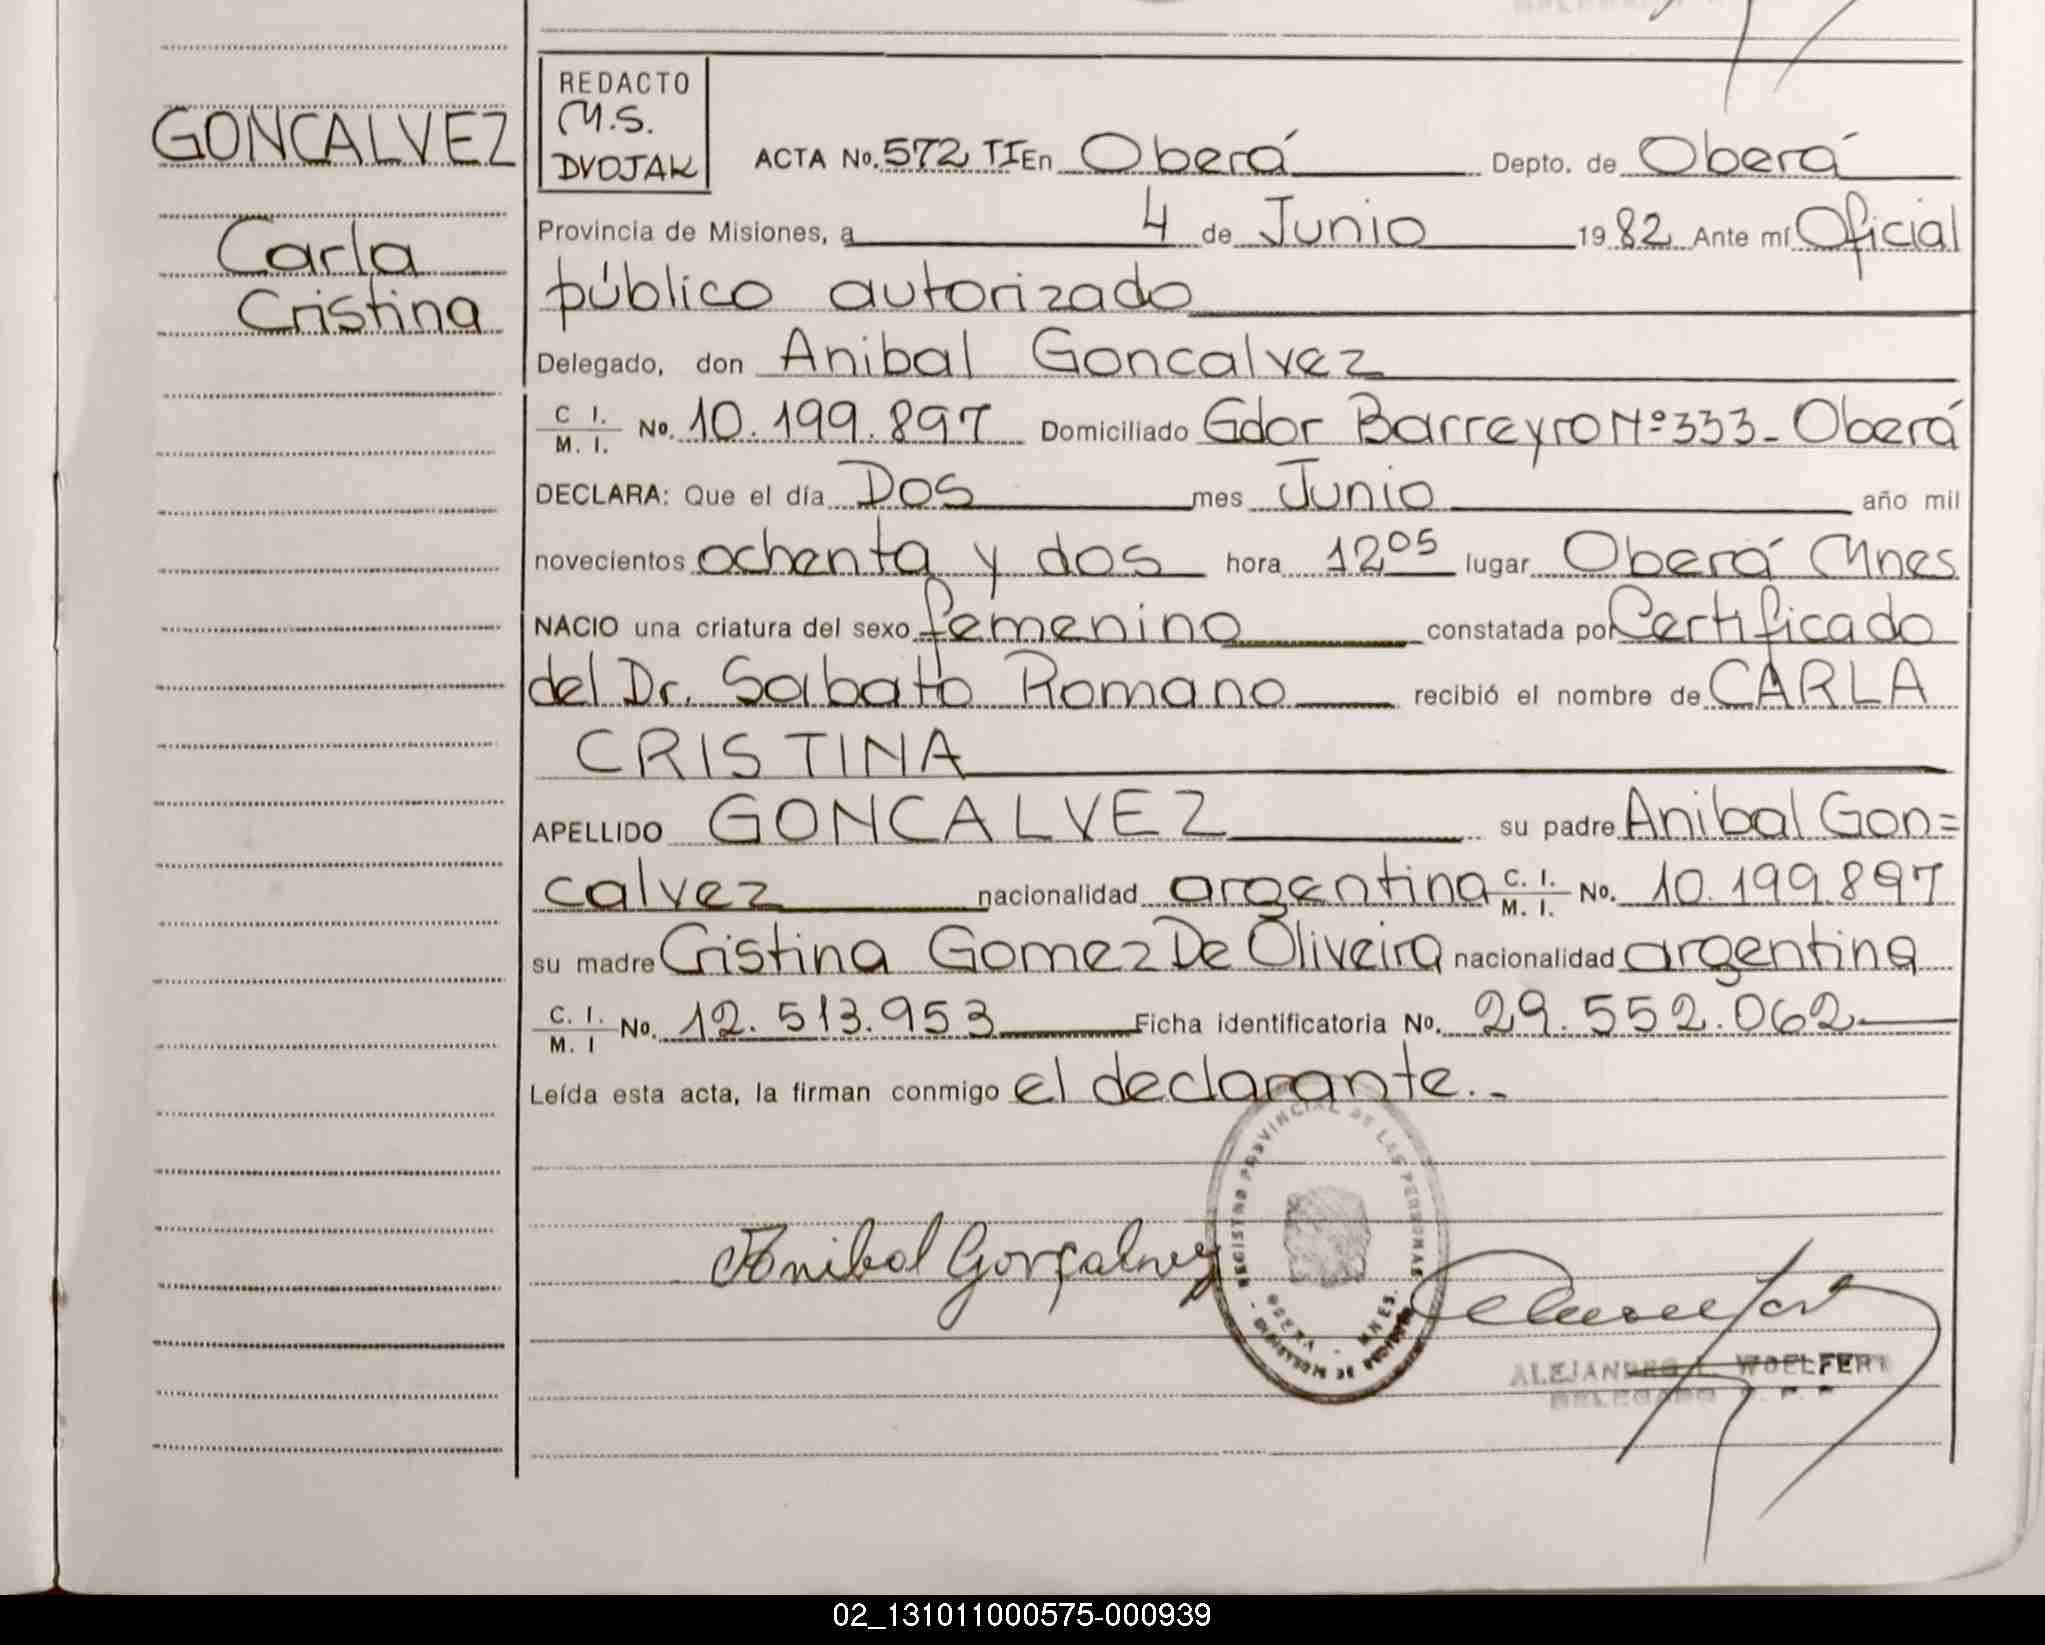 GONCALVEZ
Carla
Cristina
REDACTO
M.S.
DVOJAK
ACTA No. 572 TI En Oberá Depto. de Oberá
Provincia de Misiones, a 4 de Junio 19 82 Ante mí Oficial
público autorizado
Delegado, don Anibal Goncalvez
C I. / M. I. No. 10.199.897 Domiciliado Gdor Barreyro Nº 333 - Oberá
DECLARA: Que el día Dos mes Junio año mil
novecientos ochenta y dos hora 12 05 lugar Oberá Mnes
NACIO una criatura del sexo femenino constatada por Certificado
del Dr. Sabato Romano recibió el nombre de CARLA
CRISTINA
APELLIDO GONCALVEZ su padre Anibal Gon=
calvez nacionalidad argentina C. I. / M. I. No. 10.199.897
su madre Cristina Gomez De Oliveira nacionalidad argentina
C. I. / M. I No. 12.513.953 Ficha identificatoria No. 29.552.062
Leída esta acta, la firman conmigo el declarante.-
REGISTRO PROVINCIAL DE LAS PERSONAS
OBERA - MNES.
Anibal Gonçalvez
ALEJANDRO L. WOELFERT
DELEGADO
02_131011000575-000939